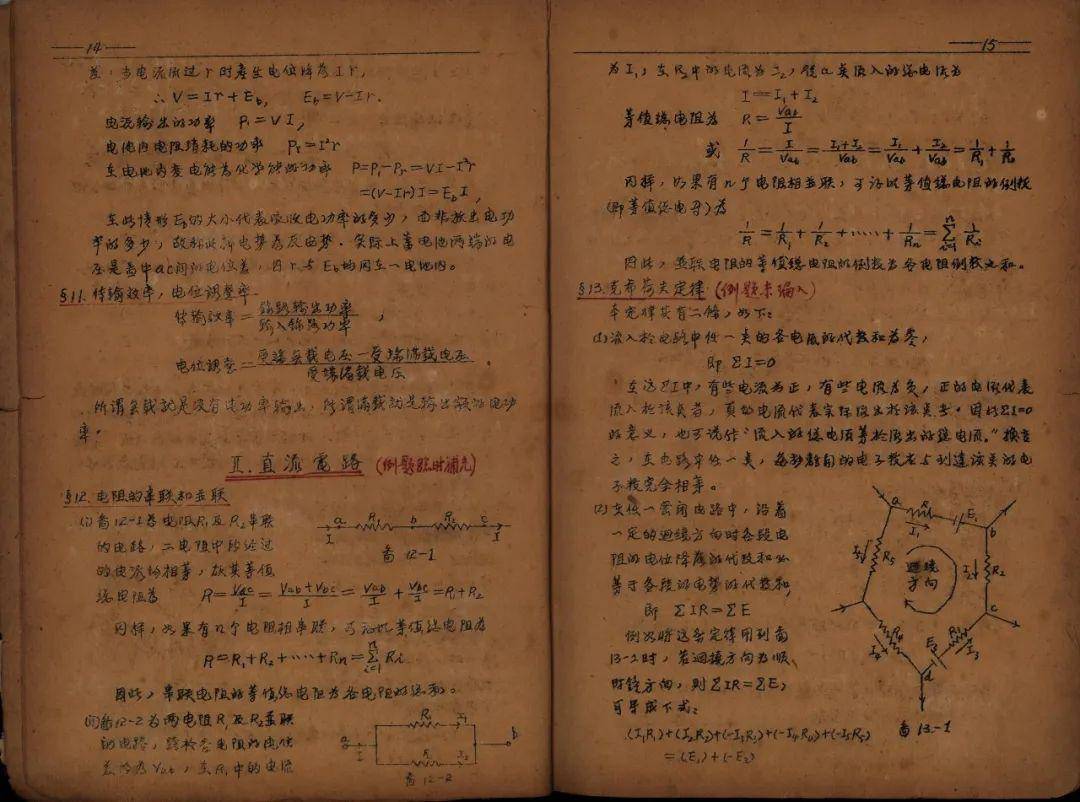 14
差，当电流流过r时产生电位降为Ir，
∴ V=Ir+E_b， E_b=V-Ir.
电源输出的功率 P₁=VI，
电池内电阻消耗的功率 P_r=I²r
在电池内变电能为化学能的功率 P=P₁-P_r=VI-I²r
=(V-Ir)I=E_bI，
在此情形E_b的大小代表吸收电功率的多少，而非放出电功
率的多少，故称此种电势为反电势．实际上蓄电池两端的电
压是图中ac间的电位差，因r与E_b均同在一电池内。
§11.传输效率，电位调整率.
传输效率=线路输出功率/输入线路功率，
电位调率=受端无载电压-受端满载电压/受端满载电压。
所谓无载就是没有电功率输出，所谓满载就是输出额的电功
率。
Ⅱ.直流電路 (例题临时补充)
§12.电阻的串联和並联
(1)图12-1为电阻R₁及R₂串联
的电路，二电阻中所经过
的电流均相等，故其等值
总电阻为 R=V_ac/I=V_ab+V_bc/I=V_ab/I+V_bc/I=R₁+R₂
a R₁ b R₂ c
I I
图12-1
同样，如果有n个电阻相串联，可证明等值总电阻为
R=R₁+R₂+……+Rn=Σ(i=1,n)Ri
因此，串联电阻的等值总电阻为各电阻的总和。
(2)图12-2为两电阻R₁及R₂並联
的电路，跨於各电阻的电位
差均为V_ab，在R₁中的电流
a I R₁ I₁ R₂ I₂ b
图12-2
15
为I₁，在R₂中的电流为I₂，從a点流入的总电流为
I=I₁+I₂
等值总电阻为 R=V_ab/I
或 1/R=I/V_ab=I₁+I₂/V_ab=I₁/V_ab+I₂/V_ab=1/R₁+1/R₂
同样，如果有n个电阻相並联，可证明等值总电阻的倒数
(即等值总电导)为
1/R=1/R₁+1/R₂+……+1/Rn=Σ(i=1,n)1/Ri
因此，並联电阻的等值总电阻的倒数为各电阻倒数之和。
§13.克希荷夫定律 (例题未编入)
本定律共有二条，如下：
(1)流入於电路中任一点的各电流的代数和为零，
即 ΣI=0
在这ΣI中，有些电流为正，有些电流为负，正的电流代表
流入於该点者，负的电流代表实际流出於该点者．因此ΣI=0
的意义，也可说作“流入的总电流等於流出的总电流。”换言
之，在电路中任一点，每秒离自的电子数与到达该点的电
子数完全相等。
(2)在任一闭电路中，沿着
一定的迴绕方向时各段电
阻的电位降落的代数和必
等于各段的电势的代数和，
即 ΣIR=ΣE
例如将这条定律用到图
13-1时，若迴绕方向为顺
时针方向，则ΣIR=ΣE，
可写成下式：
(I₁R₁)+(I₂R₂)+(-I₃R₃)+(-I₄R₄)+(-I₅R₅)
=(E₁)+(-E₂)
a R₁ E₁ b
I₁
I₅ R₅ 迴绕 I₂ R₂
方向
c
R₄ I₄ E₂ R₃ I₃
d
图13-1